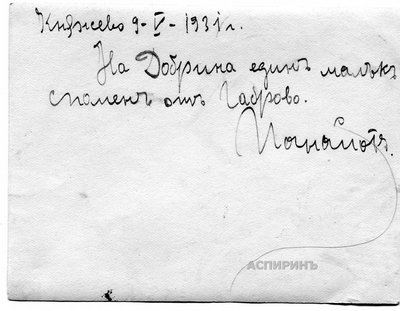 Княжево 9-V-1931 г.
На Добрина единъ малъкъ
споменъ отъ Габрово.
Панайотъ.
АСПИРИНЪ